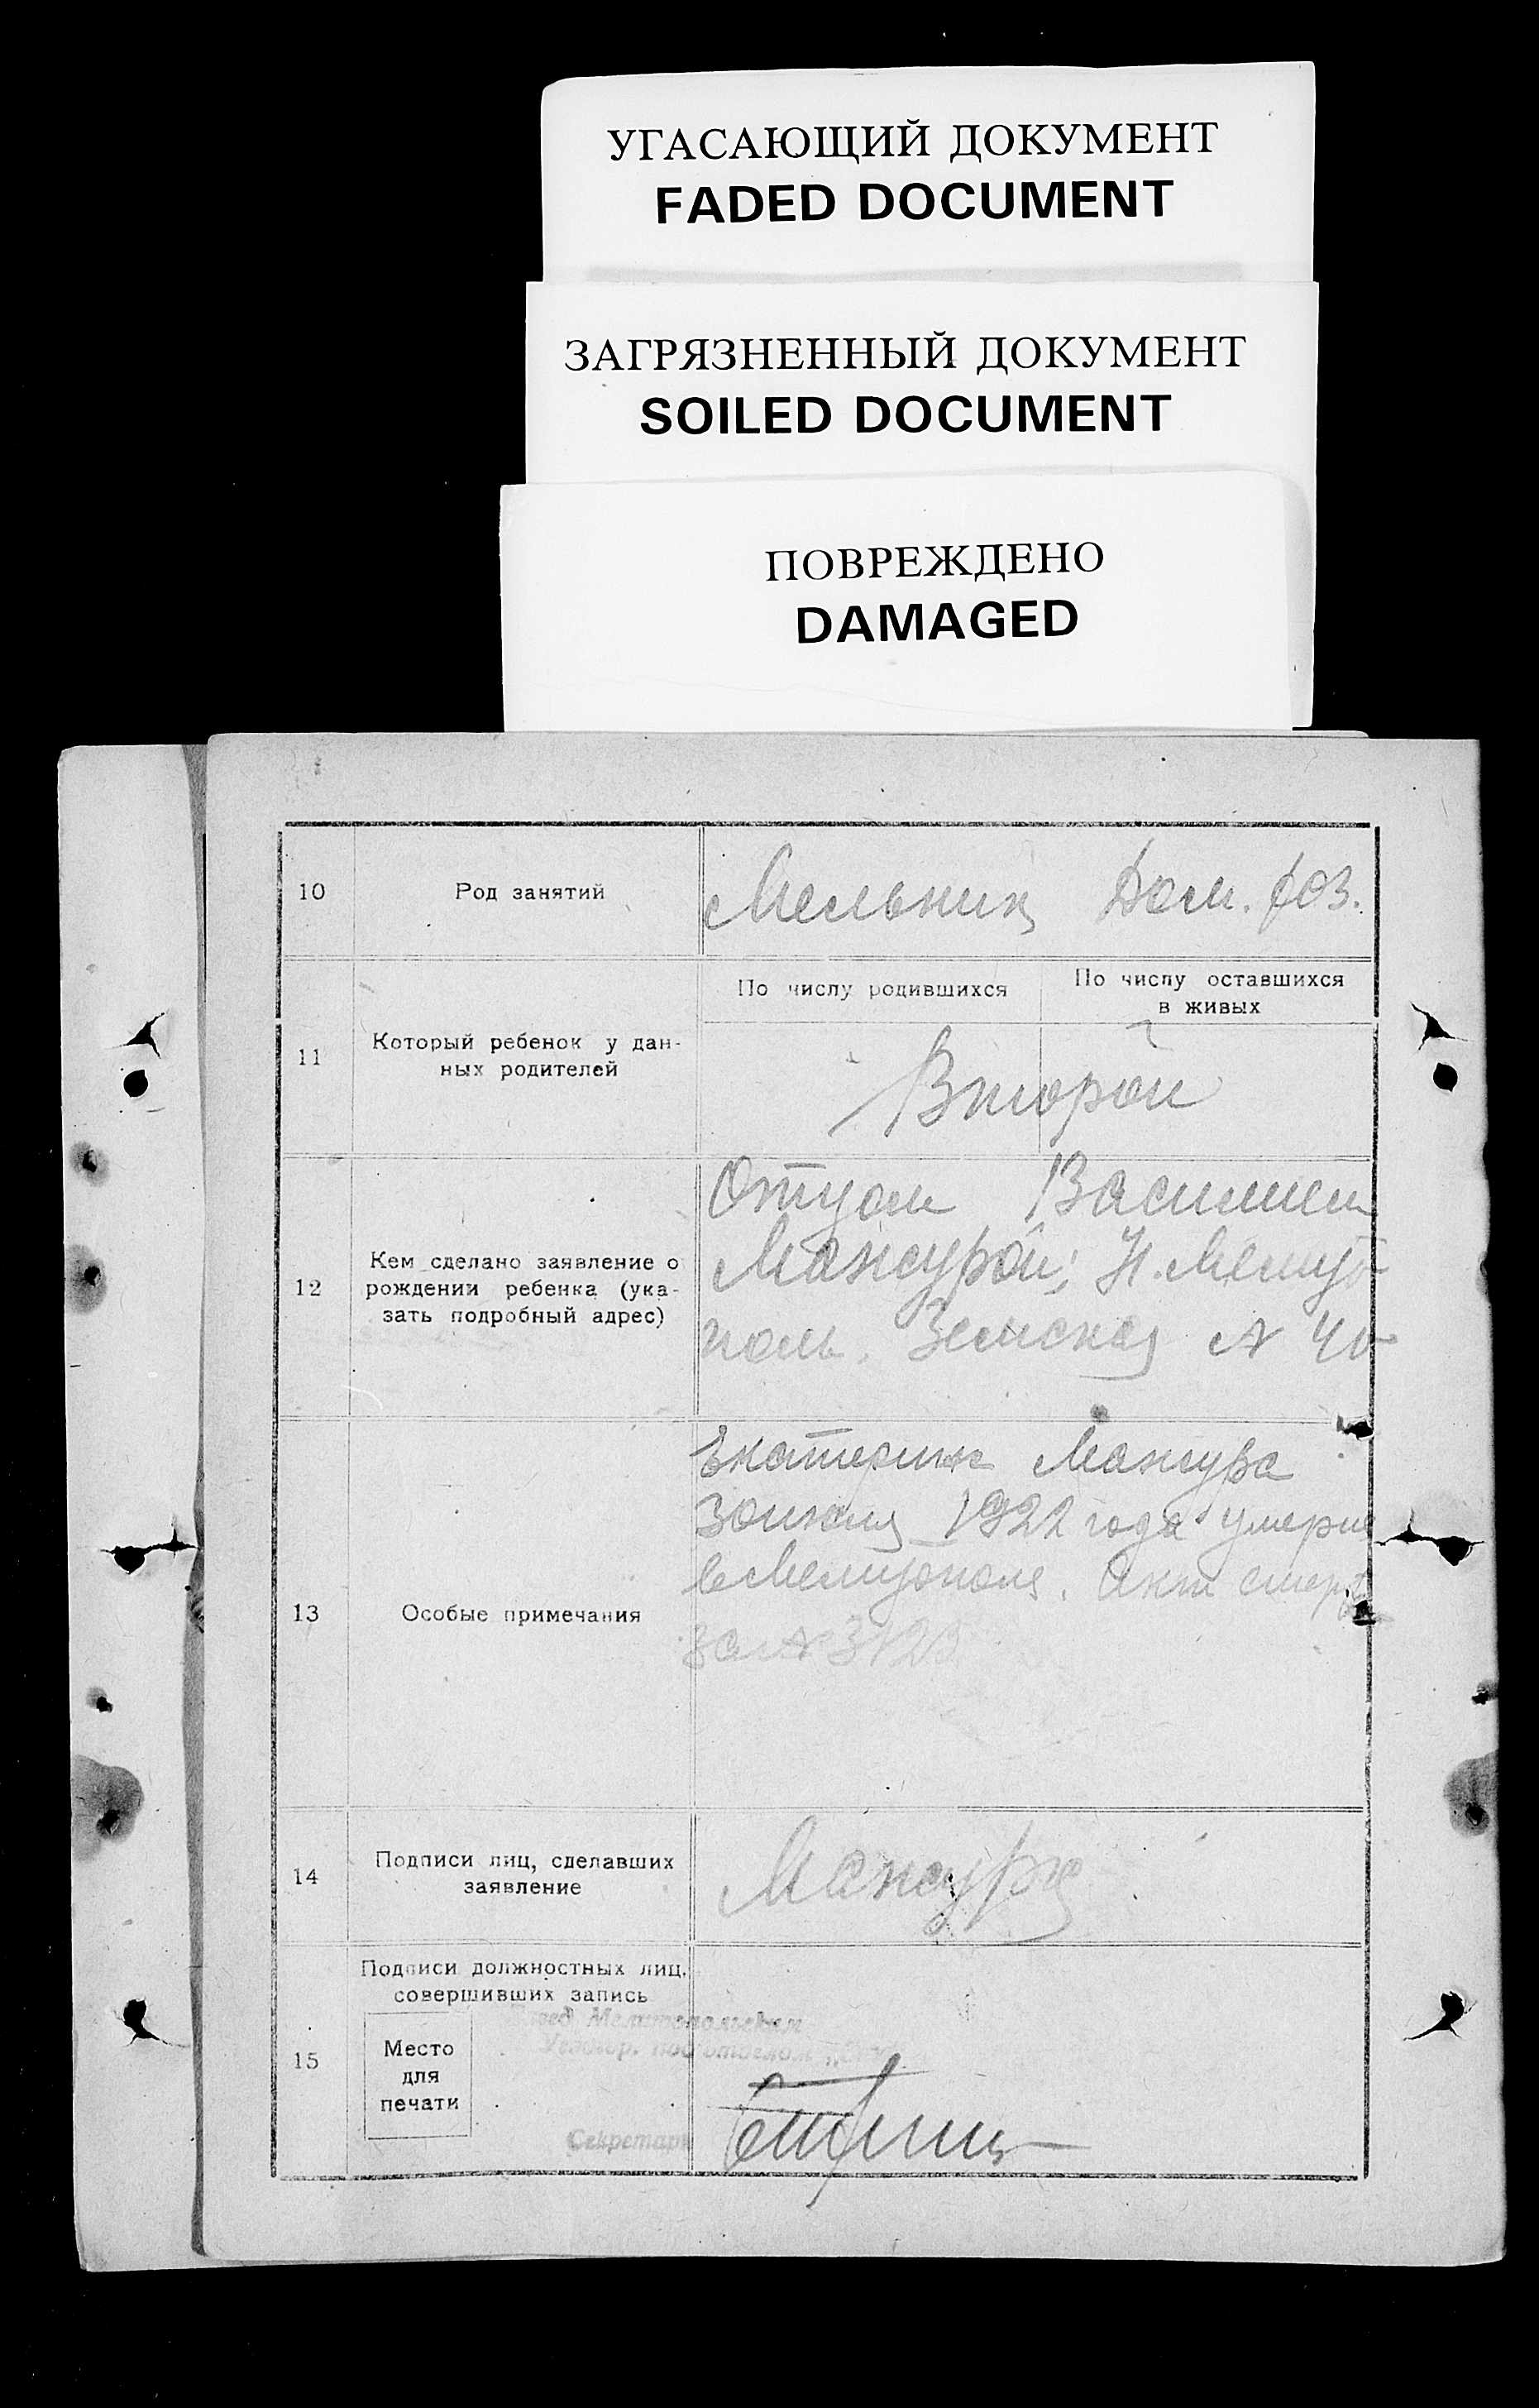 УГАСАЮЩИЙ ДОКУМЕНТ
FADED DOCUMENT
ЗАГРЯЗНЕННЫЙ ДОКУМЕНТ
SOILED DOCUMENT
ПОВРЕЖДЕНО
DAMAGED
10
Род занятий
Мельник Дом. хоз.
11
Который ребенок у дан-
ных родителей
По числу родившихся
По числу оставшихся
в живых
Второй
12
Кем сделано заявление о
рождении ребенка (ука-
зать подробный адрес)
Отцом Василием
Мансурой; Мелито-
поль. Земская № 40
13
Особые примечания
Екатерина Мансура
1922 года умерла
в Мелитополе. Акт смерт
за № 
14
Подписи лиц, сделавших
заявление
Мансура
15
Подписи должностных лиц,
совершивших запись
Место
для
печати
Секретарь